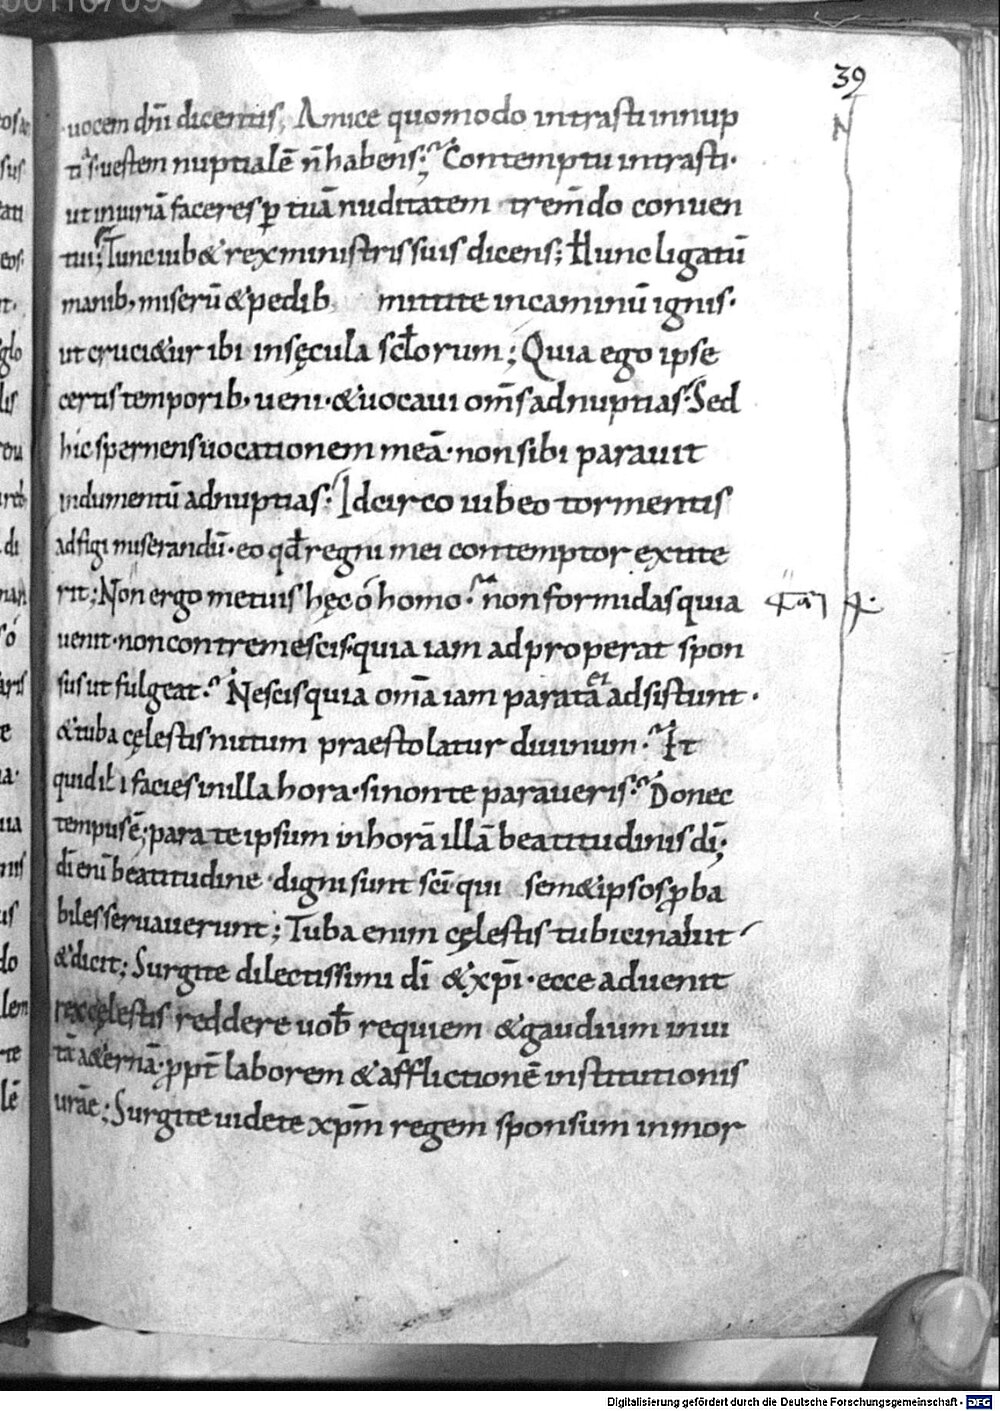 39
N
uocem dñi dicentis; Amice quomodo intrasti innup
tiis uestem nuptialē ñ habens; Contemptu intrasti·
ut iniuriā faceres ꝑ tuā nuditatem trem̄do conuen
tui; Tunc iub& rex ministris suis dicens; Hunc ligatū
manib; miserū & pedib; mittite in caminū ignis·
ut cruci&ur ibi in sęcula scl̄orum; Quia ego ipse
certis temporib; ueni· & uocaui om̄s ad nuptias· Sed
hic spernens uocationem meā· non sibi parauit
indumentū ad nuptias· Idcirco iubeo tormentis
adfigi miserandū· eo qđ regni mei contemptor extite
rit; Non ergo metuis hęc ó homo· non formidas quia
uenit· non contremescis· quia iam adproperat spon
sus ut fulgeat· Nescis quia om̄a iam parata et adsistunt·
& tuba cęlestis nutum praestolatur diuinum· Et
quid ił i facies in illa hora· si non te paraueris· Donec
tempus ē; para te ipsum in horā illā beatitudinis dī;
dī enī beatitudine digni sunt sc̄i qui sem&ipsos ꝓba
biles seruauerunt; Tuba enim cęlestis tubicinabit
& dicit; Surgite dilectissimi dī & xp̄i· ecce aduenit
rex cęlestis reddere uob̄ requiem & gaudium in ui
tā a&ernā· ꝓpt̄ laborem & afflictionē institutionis
ur̄ae; Surgite uidete xp̄m regem sponsum inmor
Digitalisierung gefördert durch die Deutsche Forschungsgemeinschaft - DFG